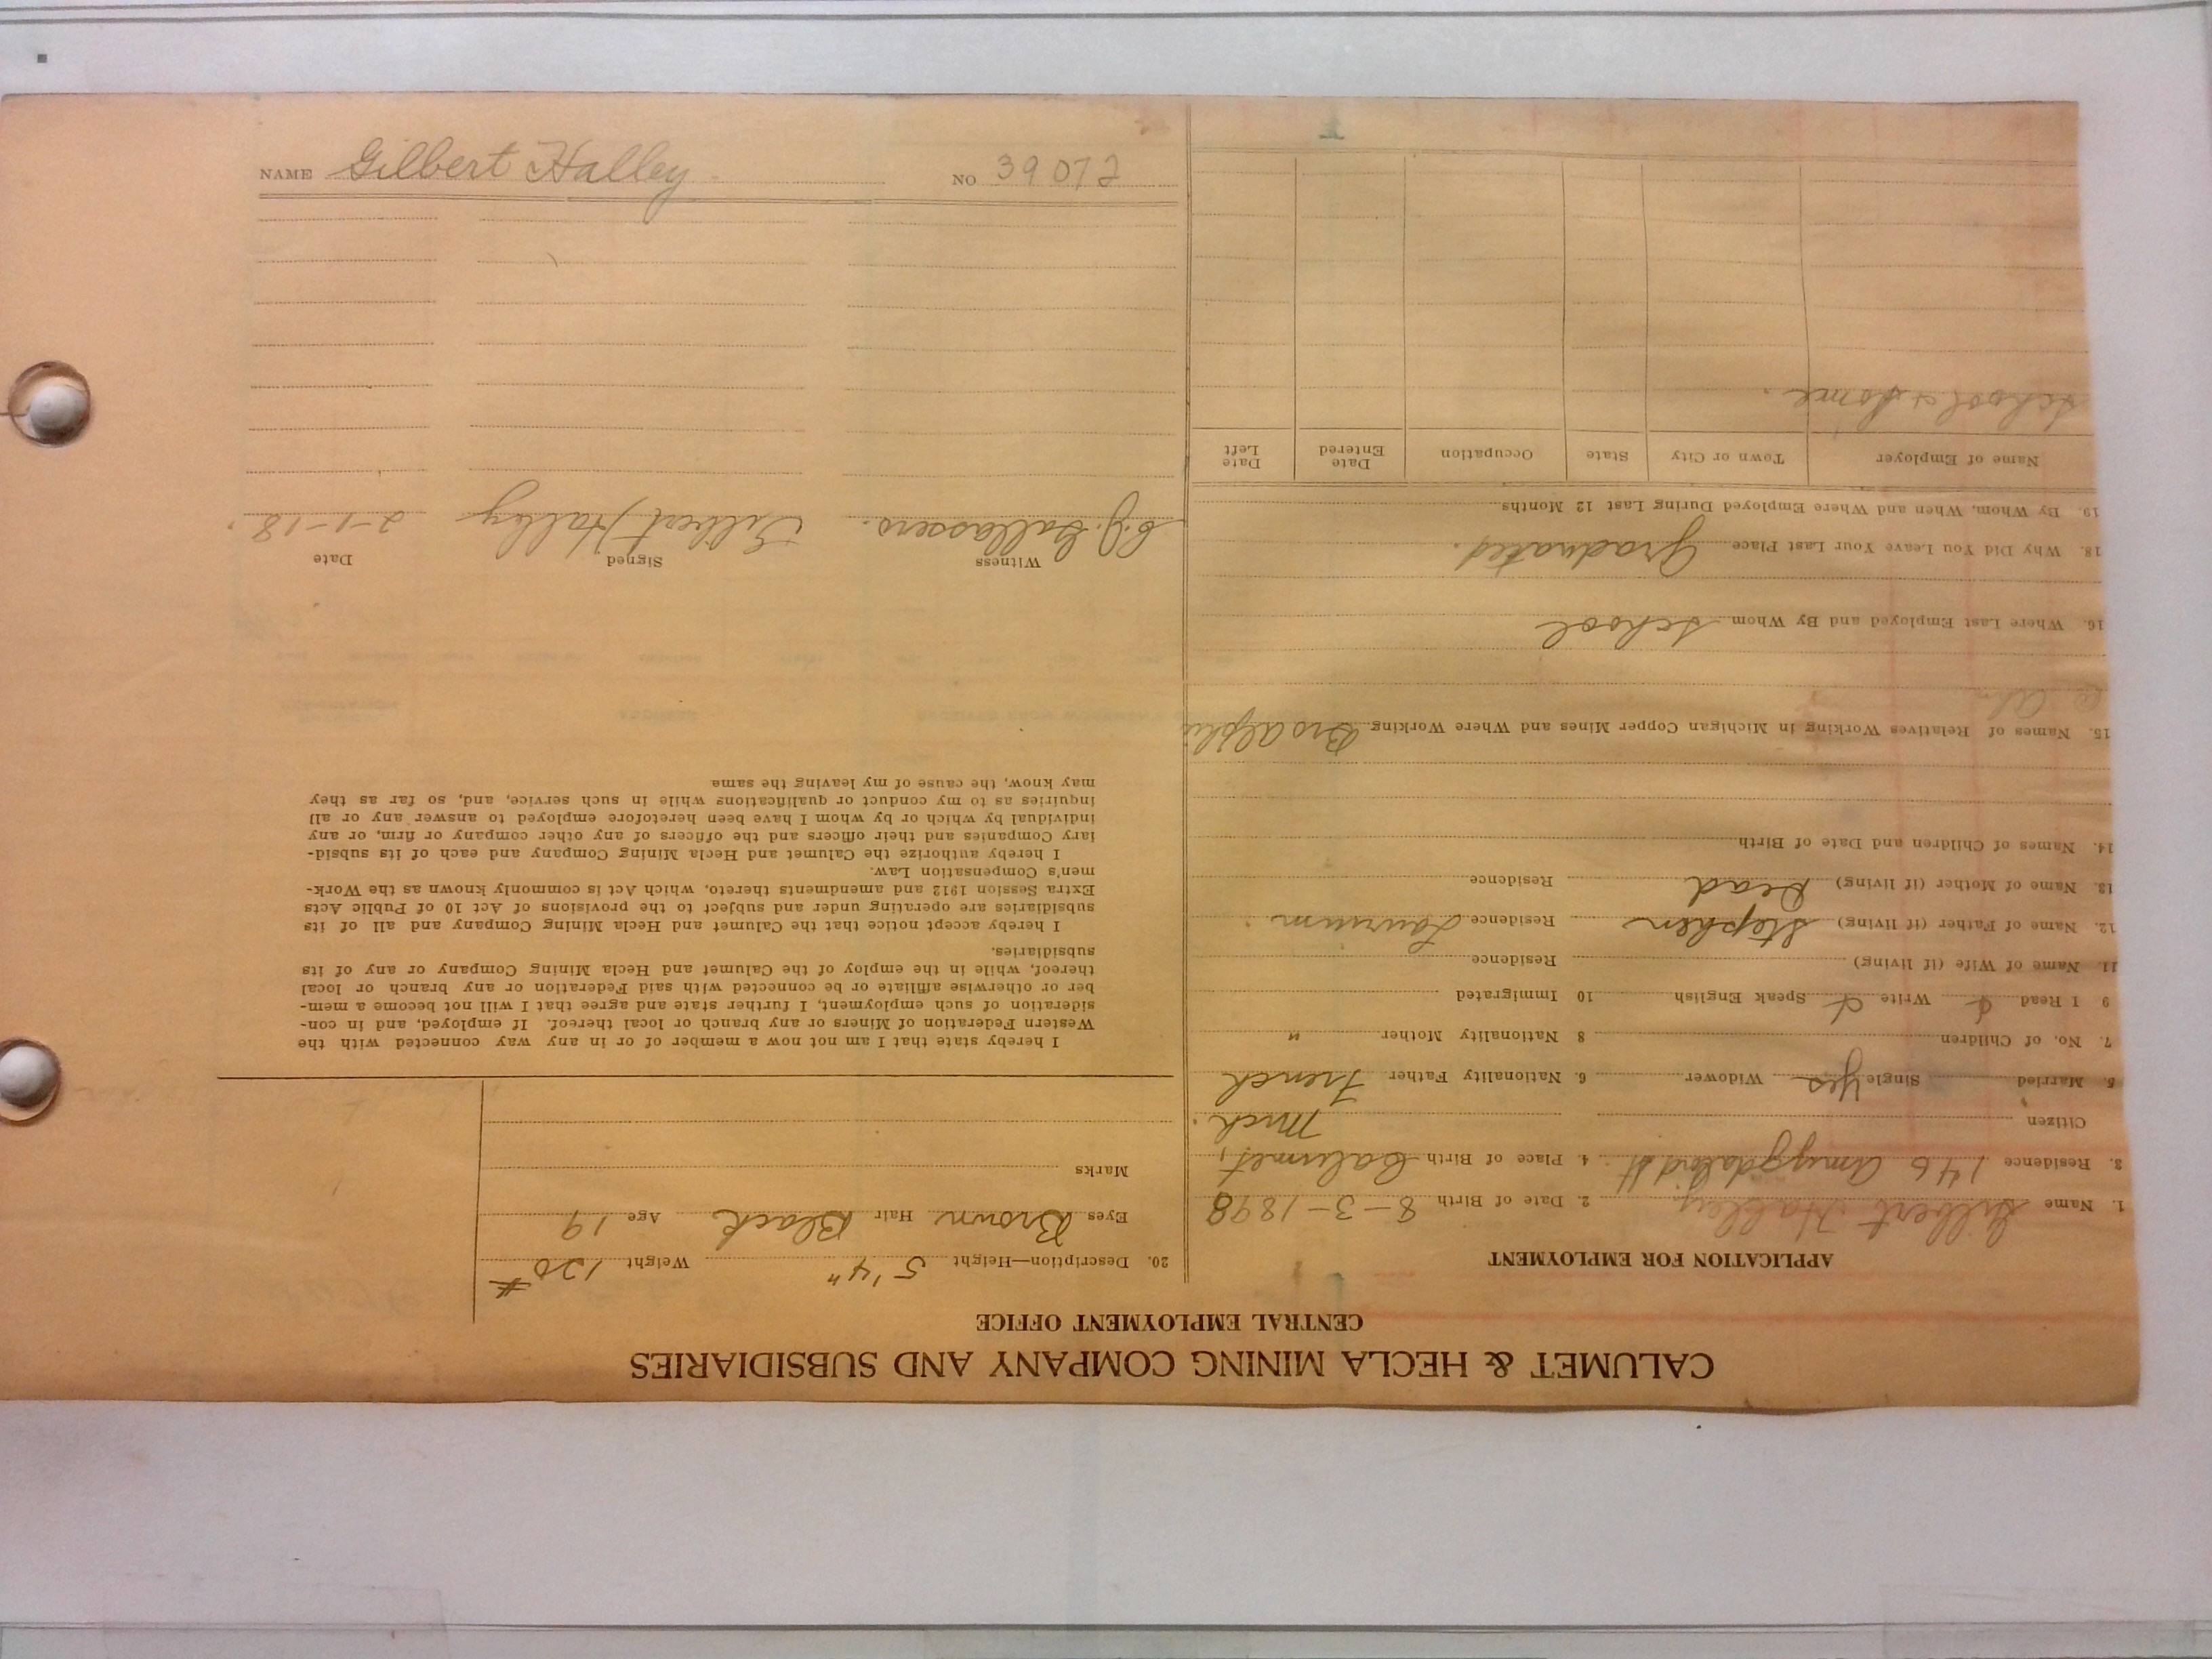 CALUMET & HECLA MINING COMPANY AND SUBSIDIARIES
CENTRAL EMPLOYMENT OFFICE
APPLICATION FOR EMPLOYMENT
1. Name Gilbert Halley 2. Date of Birth 8-3-1898
3. Residence 146 Amygdaloid St 4. Place of Birth Calumet,
Citizen Mich.
5. Married Single Yes Widower 6. Nationality Father French
7. No. of Children 8 Nationality Mother "
9 I Read Write Speak English 10 Immigrated
11. Name of Wife (if living) Residence
12. Name of Father (if living) Stephen Residence Laurium
13. Name of Mother (if living) Dead Residence
14. Names of Children and Date of Birth
15. Names of Relatives Working in Michigan Copper Mines and Where Working Bro
16. Where Last Employed and By Whom School
18. Why Did You Leave Your Last Place Graduated.
19. By Whom, When and Where Employed During Last 12 Months
Name of Employer Town or City State Occupation Date Entered Date Left
School & Home.
20. Description—Height 5'4" Weight 120#
Eyes Brown Hair Black Age 19
Marks
I hereby state that I am not now a member of or in any way connected with the
Western Federation of Miners or any branch or local thereof. If employed, and in con-
sideration of such employment, I further state and agree that I will not become a mem-
ber or otherwise affiliate or be connected with said Federation or any branch or local
thereof, while in the employ of the Calumet and Hecla Mining Company or any of its
subsidiaries.
I hereby accept notice that the Calumet and Hecla Mining Company and all of its
subsidiaries are operating under and subject to the provisions of Act 10 of Public Acts
Extra Session 1912 and amendments thereto, which Act is commonly known as the Work-
men's Compensation Law.
I hereby authorize the Calumet and Hecla Mining Company and each of its subsid-
iary Companies and their officers and the officers of any other company or firm, or any
individual by which or by whom I have been heretofore employed to answer any or all
inquiries as to my conduct or qualifications while in such service, and, so far as they
may know, the cause of my leaving the same
Witness Signed Date
Gilbert Halley 2-1-18.
NAME Gilbert Halley NO 39072